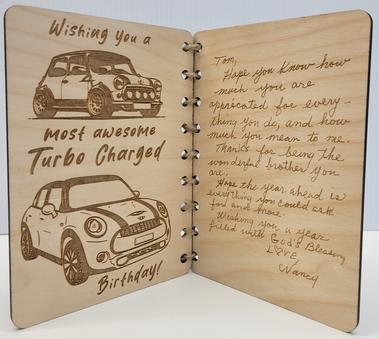 Wishing you a
most awesome
Turbo Charged
Birthday!
Tom,
Hope you know how
much you are
appricated for every-
thing you do, and how
much you mean to me.
Thanks for being the
wonderful brother you
are.
Hope the year ahead is
everything you could ask
for and more.
Wishing you a year
filled with God's Blessing
LOVE,
Nancy